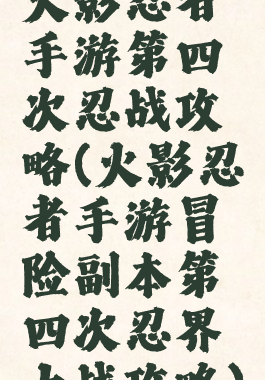 火影忍者
手游第四
次忍战攻
略(火影忍
者手游冒
险副本第
四次忍界
大战攻略)